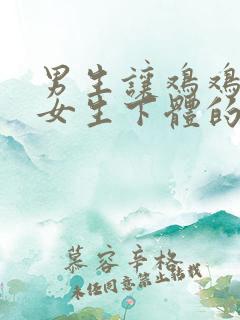 男生讓鸡鸡
女生下體的
慕容辛格
未经同意禁止转载